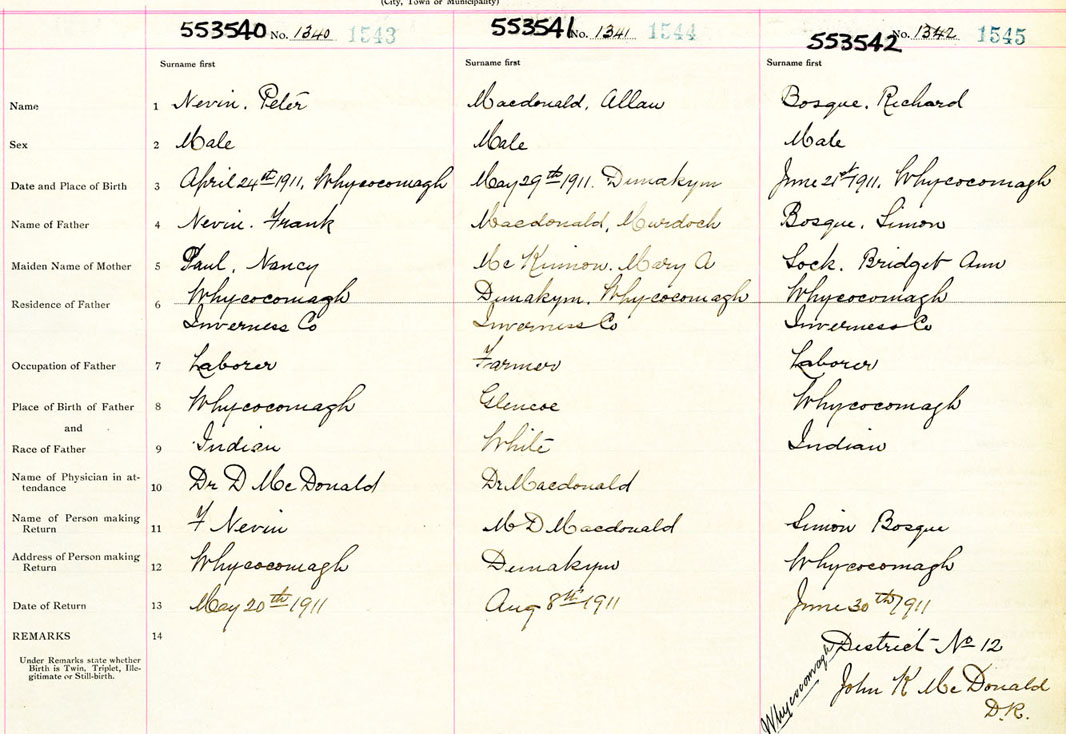 (City, Town or Municipality)
553540 No. 1340 1543 553541 No. 1341 1544 553542 No. 1342 1545
Surname first Surname first Surname first
Name 1 Nevin. Peter Macdonald, Allan Bosque. Richard
Sex 2 Male Male Male
Date and Place of Birth 3 April 24th 1911, Whycocomagh May 29th 1911. Dunakym June 21st 1911, Whycocomagh
Name of Father 4 Nevin. Frank Macdonald, Murdoch Bosque. Simon
Maiden Name of Mother 5 Paul, Nancy Mc Kinnon. Mary A Sock. Bridget Ann
Residence of Father 6 Whycocomagh Dunakym. Whycocomagh Whycocomagh
Inverness Co Inverness Co Inverness Co
Occupation of Father 7 Laborer Farmer Laborer
Place of Birth of Father 8 Whycocomagh Glencoe Whycocomagh
and
Race of Father 9 Indian White Indian
Name of Physician in at-
tendance 10 Dr D McDonald Dr Macdonald
Name of Person making
Return 11 F Nevin M D Macdonald Simon Bosque
Address of Person making
Return 12 Whycocomagh Dunakym Whycocomagh
Date of Return 13 May 20th 1911 Aug 8th 1911 June 30th 1911
REMARKS 14
Under Remarks state whether
Birth is Twin, Triplet, Ille-
gitimate or Still-birth.
Whycocomagh District No 12
John K McDonald
D.R.